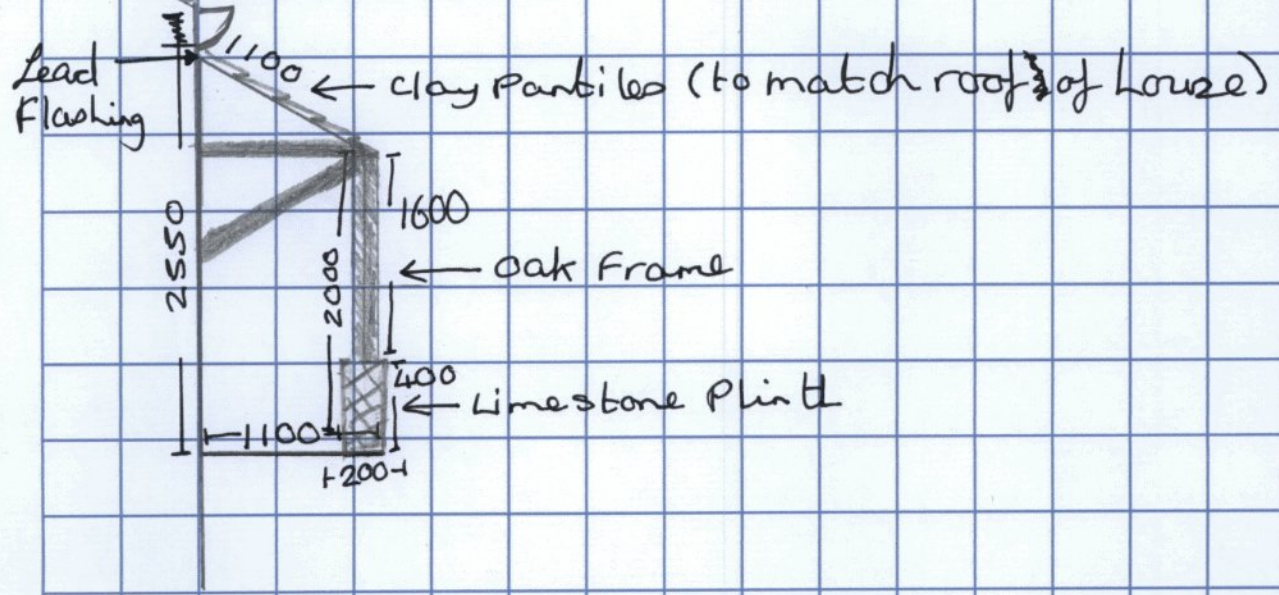 Lead
Flashing
1100
Clay Pantiles (to match roof of house)
2550
1600
2000
Oak Frame
400
Limestone Plinth
1100
200